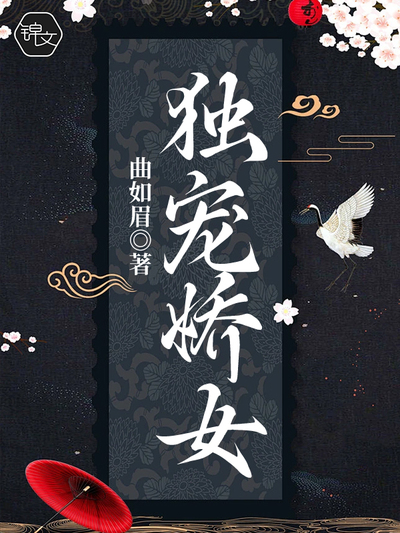 锦文
独宠娇女
曲如眉◎著